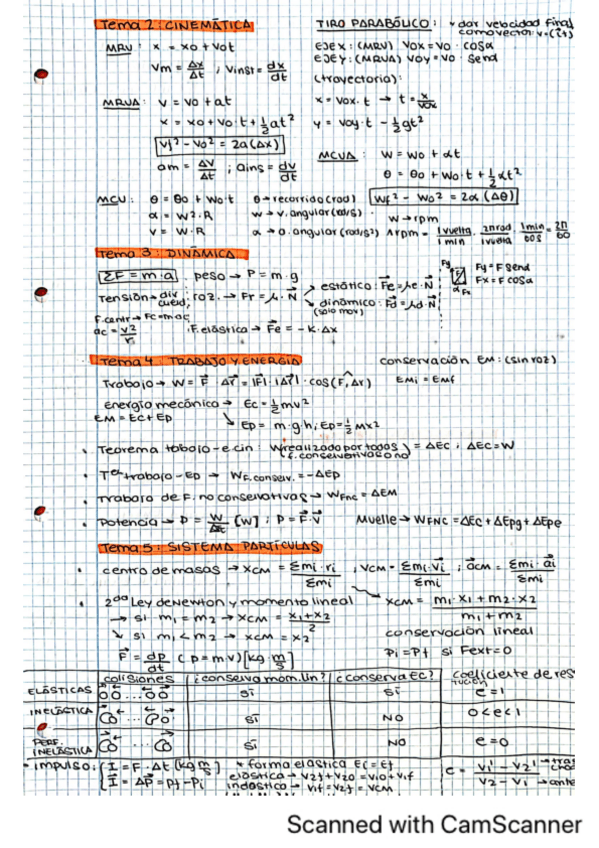 Tema 2: CINEMÁTICA
MRU: x = x0 + v0t
Vm = Δx/Δt ; Vinst = dx/dt
MRUA: v = v0 + at
x = x0 + v0·t + 1/2 at²
vf² - v0² = 2a(Δx)
am = Δv/Δt ; ains = dv/dt
MCU: θ = θ0 + w0t
θ → recorrido (rad)
α = w²·R
w → v. angular (rad/s)
v = w·R
α → a. angular (rad/s²)
TIRO PARABÓLICO: * dar velocidad final
como vector v=(î+)
EJE X: (MRU) V0x = V0 · cosα
EJE Y: (MRUA) V0y = V0 · senα
(trayectoria):
x = V0x · t → t = x/V0x
y = V0y·t - 1/2 gt²
MCUA: w = w0 + αt
θ = θ0 + w0·t + 1/2 αt²
wf² - w0² = 2α (Δθ)
w → rpm
1 rpm = 1 vuelta/1 min · 2πrad/1 vuelta · 1 min/60s = 2π/60
Tema 3: DINÁMICA
ΣF = m·a peso → P = m·g
Tensión → div cuerd; roz. → Fr = μ·N
estático: Fe = μe·N
dinámico: Fd = μd·N
(solo mov)
F.centr → Fc = mac
ac = v²/r
·F.elástica → Fe = -K·Δx
Fy = F senα
Fx = F cosα
Fy
F
α Fx
Tema 4: TRABAJO Y ENERGÍA
conservación EM: (sin roz)
Trabajo → W = F · Δr = |F| · |Δr| · cos(F,Δr)
EMi = EMf
energía mecánica → Ec = 1/2 mv²
EM = Ec + Ep
Ep = m·g·h; Ep = 1/2 Mx²
· Teorema tobajo-e cin: W(realizado por todos f. conservativas o no) = ΔEc ; ΔEc = W
· Tª trabajo-Ep → WF.conserv. = -ΔEp
· Trabajo de F. no conservativas → WFnc = ΔEM
· Potencia → P = W/Δt [W] ; P = F·V
Muelle → WFNC = ΔEc + ΔEpg + ΔEpe
Tema 5: SISTEMA PARTÍCULAS
· centro de masas → xCM = Σmi·ri/Σmi ; VCM = Σmi·vi/Σmi ; aCM = Σmi·ai/Σmi
· 2da Ley de Newton y momento lineal
xCM = m1·x1 + m2·x2/m1 + m2
→ si m1 = m2 → xCM = x1+x2/2
si m1 < m2 → xCM = x2
conservación lineal
F = dp/dt (p = m·v) [kg·m/s]
Pi = Pf si Fext=0
colisiones ¿conserva mom.lin? ¿conserva Ec? coeficiente de res
titución
ELÁSTICAS SÍ SÍ e = 1
INELÁSTICA SÍ NO 0<e<1
PERF. INELÁSTICA SÍ NO e = 0
· impulso: I = F · Δt [kg m/s]
I = ΔP = Pf - Pi
* forma elástica Ei = Ef
elástica → v2f + v20 = v10 + v1f
v1f = v2f = vCM
e = v1' - v2'/v2 - v1
Scanned with CamScanner